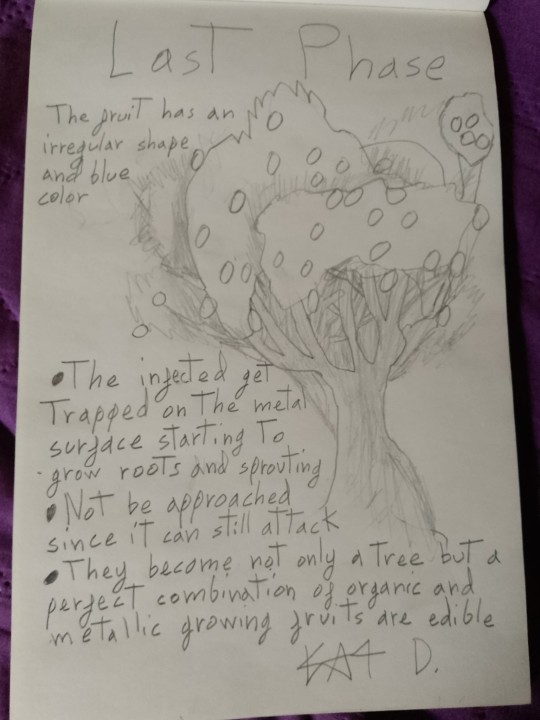 Last Phase
The fruit has an
irregular shape
and blue
color
• The infected get
Trapped on The metal
surface starting To
grow roots and sprouting
• Not be approached
since it can still attack
• They become not only a Tree but a
perfect combination of organic and
metallic growing fruits are edible
KAT D.